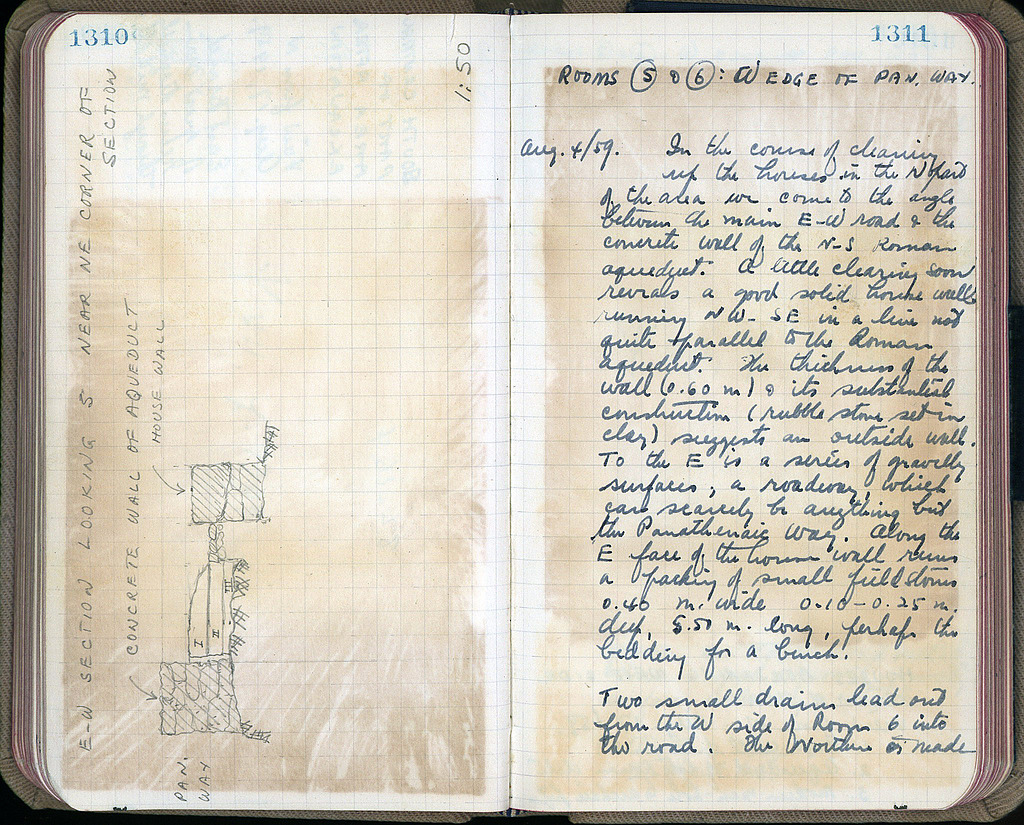 1310
1:50
E-W SECTION LOOKING S NEAR NE CORNER OF
SECTION
CONCRETE WALL OF AQUEDUCT
HOUSE WALL
I
II
III
PAN.
WAY
1311
ROOMS 5 & 6: W EDGE OF PAN. WAY.
Aug. 4/59. In the course of cleaning
up the houses in the N part
of the area we come to the angle
between the main E-W road & the
concrete wall of the N-S Roman
aqueduct. A little clearing soon
reveals a good solid house wall
running NW-SE in a line not
quite parallel to the Roman
aqueduct. The thickness of the
wall (0.60 m) & its substantial
construction (rubble stone set in
clay) suggests an outside wall.
To the E is a series of gravelly
surfaces, a roadway, which
can scarcely be anything but
the Panathenaic Way. Along the
E face of the house wall runs
a packing of small field stones
0.40 m. wide 0.10-0.25 m.
deep, 5.50 m. long, perhaps the
bedding for a bench.
Two small drains lead out
from the W side of Room 6 into
the road. The is made